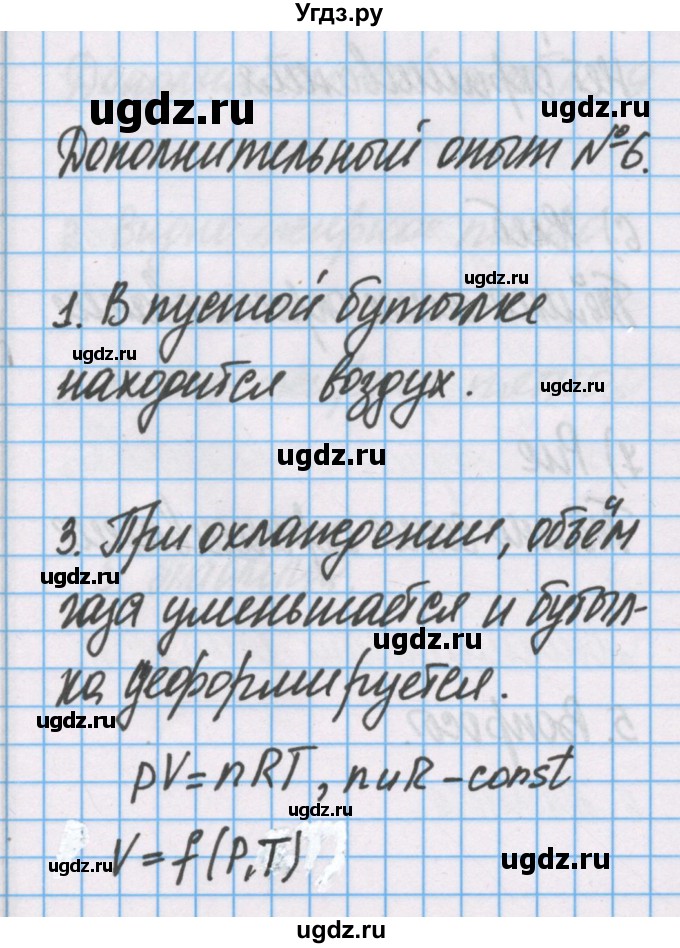 Угдз.ру
ugdz.ru
ugdz.ru
Дополнительный опыт №6.
ugdz.ru
1. В пустой бутылке
ugdz.ru
находится воздух.
ugdz.ru
ugdz.ru
3. При охлаждении, объём
ugdz.ru
газа уменьшается и бутыл-
ugdz.ru
ка деформируется.
ugdz.ru
pV = nRT, n и R - const
ugdz.ru
V = f(P,T)
ugdz.ru
ugdz.ru
ugdz.ru